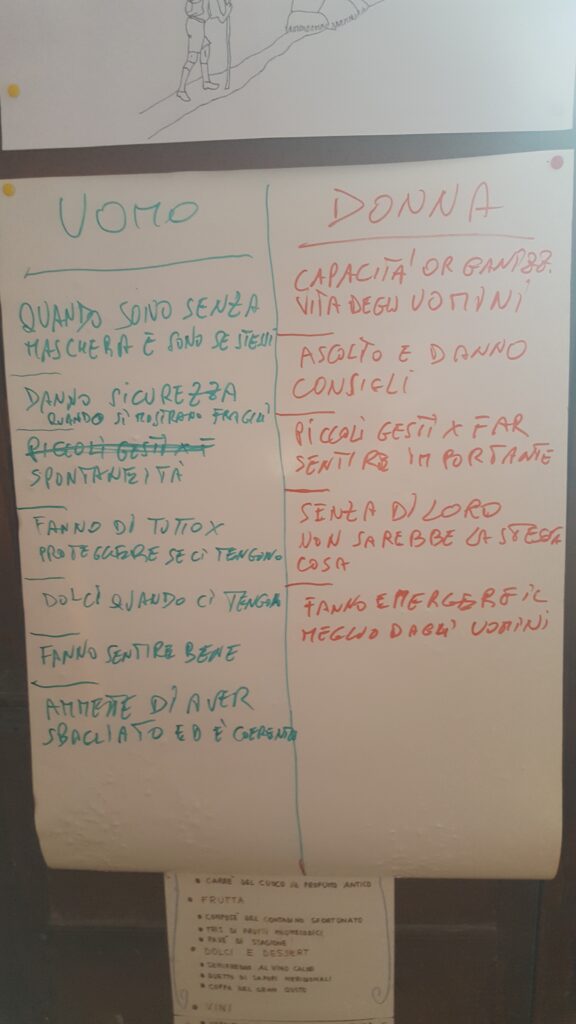 UOMO
QUANDO SONO SENZA
MASCHERA E SONO SE STESSI
DANNO SICUREZZA
QUANDO SI MOSTRANO FRAGILI
PICCOLI GESTI X F
SPONTANEITÀ
FANNO DI TUTTO X
PROTEGGERE SE CI TENGONO
DOLCI QUANDO CI TENGON
FANNO SENTIRE BENE
AMMETTE DI AVER
SBAGLIATO ED È COERENTE
DONNA
CAPACITA' ORGANIZZ.
VITA DEGLI UOMINI
ASCOLTO E DANNO
CONSIGLI
PICCOLI GESTI X FAR
SENTIRE IMPORTANTE
SENZA DI LORO
NON SAREBBE LA STESSA
COSA
FANNO EMERGERE IL
MEGLIO DAGLI UOMINI
CARRE' DEL CUOCO AL PROFUMO ANTICO
FRUTTA
COMPOSE' DEL CONTADINO SFORTUNATO
TRIS DI FRUTTI
PAVE' DI STAGIONE
DOLCI E DESSERT
SEMIFREDDO AL VINO CALDO
DUETTO DI SAPORI MERIDIONALI
COPPA DEL GRAN GUSTO
VINI